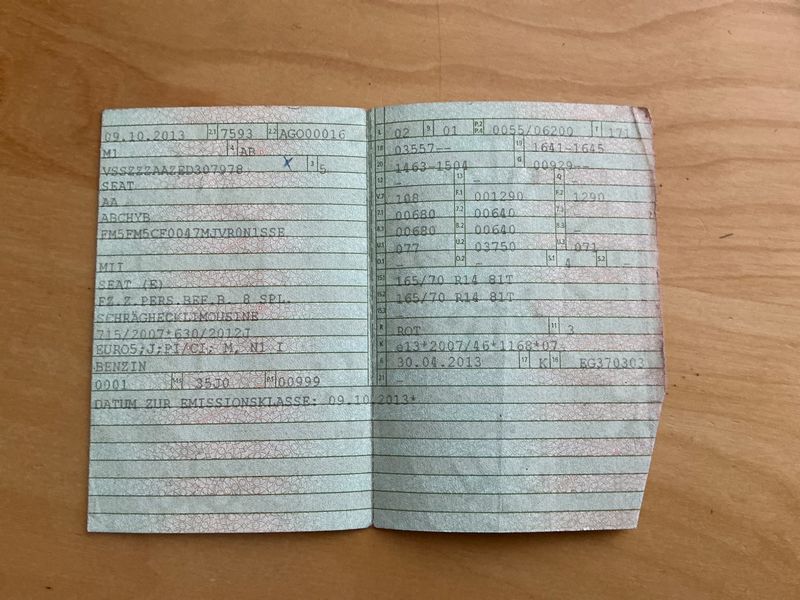 09.10.2013 2.1 7593 2.2 AGO00016
M1 4 AB
VSSZZZAAZED307978 3 5
SEAT
AA
ABCHYB
FM5FM5CF0047MJVR0N1SSE
MII
SEAT (E)
FZ.Z.PERS.BEF.B. 8 SPL.
SCHRÄGHECKLIMOUSINE
715/2007*630/2012J
EURO5;J;PI/CI; M, N1 I
BENZIN
0001 35J0 00999
DATUM ZUR EMISSIONSKLASSE: 09.10.2013*
L 02 9 01 P.2 P.4 0055/06200 T 171
18 03557-- 19 1641-1645
20 1463-1504 G 00929--
12 - 13 - Q -
V.7 108 F.1 001290 F.2 1290
7.1 00680 7.2 00640 7.3 -
8.1 00680 8.2 00640 8.3 -
U.1 077 U.2 03750 U.3 071
O.1 - O.2 - S.1 4 S.2 -
15.1 165/70 R14 81T
15.2 165/70 R14 81T
-
R ROT 11 3
K e13*2007/46*1168*07
6 30.04.2013 17 K 16 EG370303
21 -